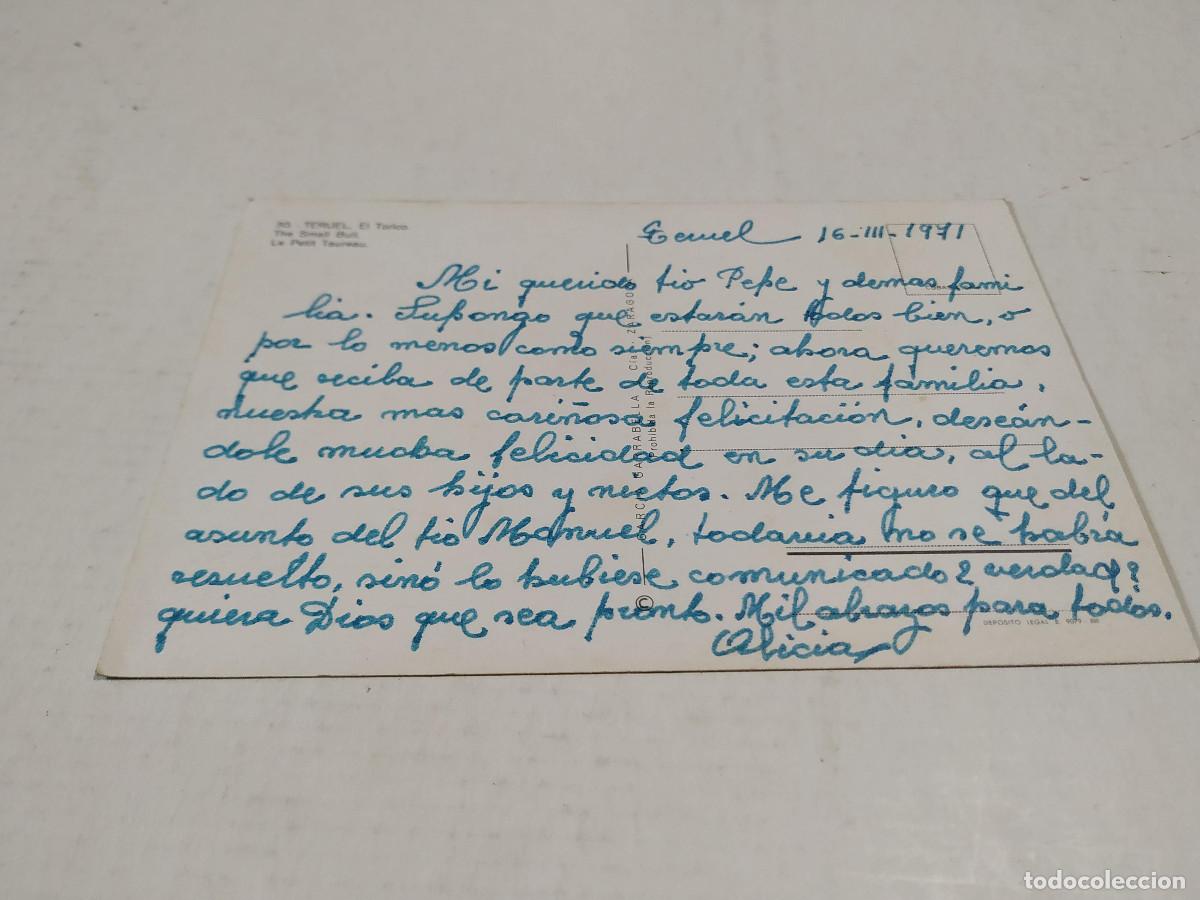 30 - TERUEL. El Torico.
The Small Bull.
Le Petit Taureau.
Teruel 16-III-1971
Mi querido tio Pepe y demas fami
lia. Supongo que estarán todos bien, o
por lo menos como siempre; ahora queremos
que reciba de parte de toda esta familia,
nuestra mas cariñosa felicitación, deseán-
dole mucha felicidad en su dia, al la-
do de sus hijos y nietos. Me figuro que del
asunto del tio Manuel, todavia no se habrá
resuelto, sinó lo hubiese comunicado ¿verdad?
quiera Dios que sea pronto. Mil abrazos para todos.
Alicia
© GARCIA GARRABELLA Y Cía. - ZARAGOZA
(Prohibida la Reproducción)
DEPOSITO LEGAL B. 9079
todocoleccion